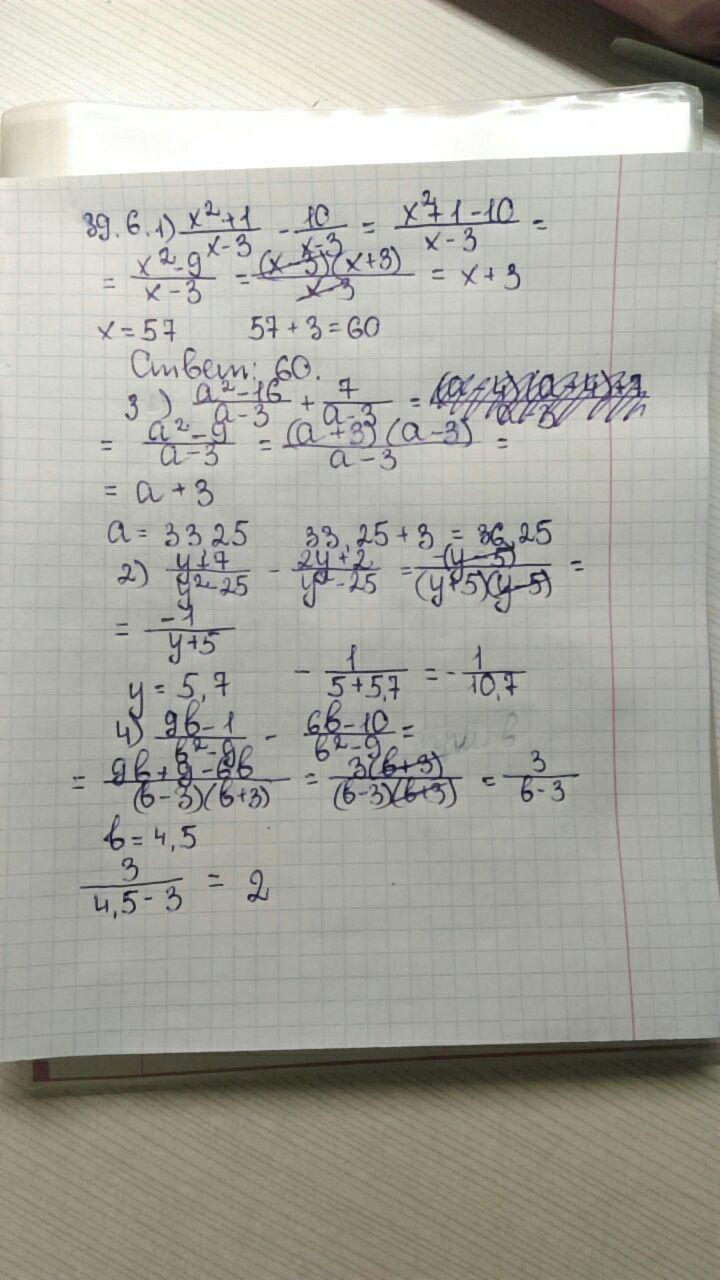 39.6.1) (x²+1)/(x-3) - 10/(x-3) = (x²+1-10)/(x-3) =
= (x²-9)/(x-3) = ((x-3)(x+3))/(x-3) = x+3
x=57 57+3=60
Ответ: 60.
3) (a²-16)/(a-3) + 7/(a-3) =
= (a²-9)/(a-3) = ((a+3)(a-3))/(a-3) =
= a+3
a=33,25 33,25+3=36,25
2) (y+7)/(y²-25) - (2y+2)/(y²-25) = -(y-5)/((y+5)(y-5)) =
= -1/(y+5)
y=5,7 -1/(5+5,7) = -1/10,7
4) (9b-1)/(b²-9) - (6b-10)/(b²-9) =
= (9b+9-6b)/((b-3)(b+3)) = 3(b+3)/((b-3)(b+3)) = 3/(b-3)
b=4,5
3/(4,5-3) = 2